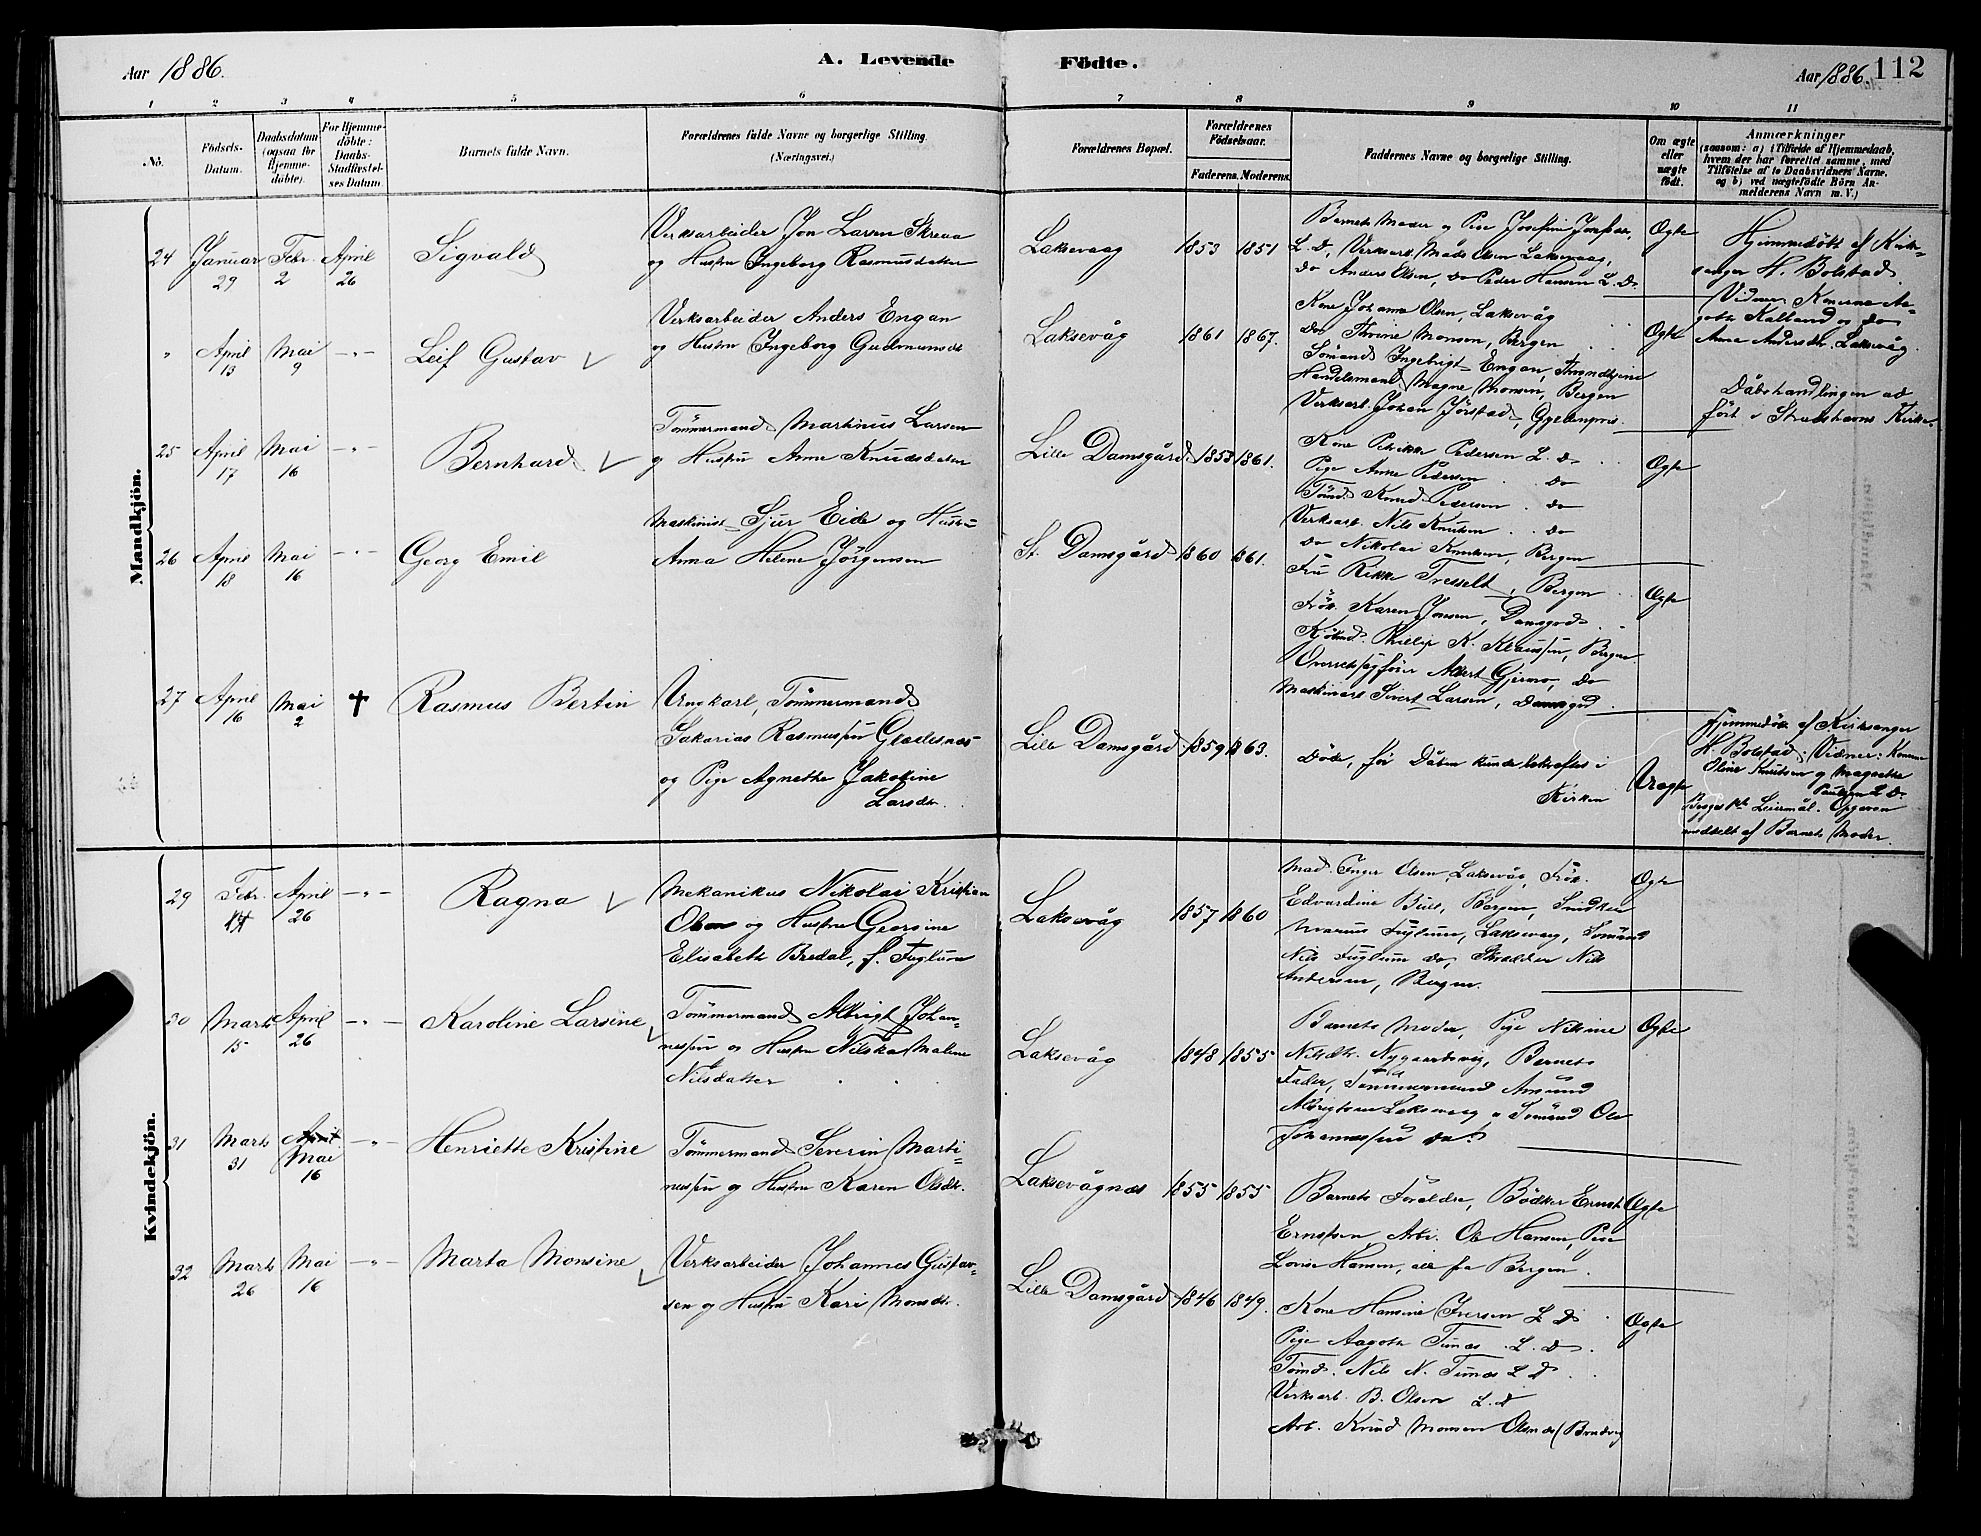 Aar 1886.
A. Levende
Födte.
Aar 1886. 112
1 2 3 4 5 6 7 8 9 10 11
No.
Födsels-
Datum.
Daabsdatum
(ogsaa for
Hjemme-
döbte).
For Hjemme-
döbte:
Daabs-
Stadfæstel-
ses Datum
Barnets fulde Navn.
Forældrenes fulde Navne og borgerlige Stilling.
(Næringsvei.)
Forældrenes Bopæl.
Forældrenes
Födselsaar.
Faderens. Moderens.
Faddernes Navne og borgerlige Stilling.
Om ægte
eller
uægte
födt.
Anmærkninger
(saasom: a) i Tilfælde af Hjemmedaab,
hvem der har forrettet samme, med
Tilföielse af to Daabsvidners Navne,
og b) ved uægtefödte Börn An-
melderens Navn m.V.)
Mandkjön.
24 Januar 29 Febr. 2 April 26
Sigvald
Verksarbeider Jon Larsen Skrea
og Hustru Ingeborg Rasmusdatter
Laksevaag 1853 1851
Barnets Moder og Pige Josefine
L. D., Verksarb. Mads Olsen Laksevaag,
do Anders Olsen, do Peder Hansen L. D.
Ægte
Hjemmedöbt af Kirke-
sanger H. Bolstad
Vidner Konerne Aa-
gothe Kalland og do
Anna Andersdtr. Laksevåg.
" April 13 Mai 9 -"-
Leif Gustav
Verksarbeider Anders Engan
og Hustru Ingeborg Gudmunsdt
Laksevåg 1861 1867.
Kone Johanne Olsen, Laksevåg
do Thrine Monsen, Bergen
Sömand Ingebrigt Engan, Throndhjem
Handelsmand Magne Monsen, Bergen
Verksarb. Johan Jörstad,
Ægte
Dåbshandlingen ud
fört i Kirke
25 April 17 Mai 16 -"-
Bernhard
Tömmermand Martinius Larsen
og Hustru Anne Knudsdatter
Lille Damsgård 1853 1861.
Kone Petrikke Pedersen L. D.
Pige Anne Pedersen do
Tömd. Knud Pedersen do
Verksarb. Nils Knutsen do
do Nikolai Knutsen, Bergen
Ægte
26 April 18 Mai 16 -"-
Georg Emil
Maskinist Sjur Eide og Hustru
Anna Helene Jörgensen
St. Damsgård 1860 1861.
Fru Rikke Tresselt, Bergen
Frök. Karen Jansen, Damsgård
Kjöbmd. Phillip K. Klaussen, Bergen
Albert Gjermo, do
Maskinist Sivert Larsen, Damsgrd
Ægte
27 April 16 Mai 2 †
Rasmus Bertin
Ungkarl, Tömmermand
Sakarias Rasmussen
og Pige Agnethe Jakobine
Larsdtr.
Lille Damsgård 1859 1863.
Döde, för Dåben kunde bekræftes i
Kirken
Uægte
Hjemmedöbt af Kirkesanger
H. Bolstad. Vidner: Konerne
Oline Knutsen og Magrethe
Paulsen L. D.
Begges 1ste Leiermål. Opgaven
meddelt af Barnets Moder.
Kvindekjön.
29 Febr. 14 April 26 -"-
Ragna
Mekanikus Nikolai Kristian
Olsen og Hustru Georgine
Elisabeth Bredal, f. Fuglum
Laksevåg 1857 1860
Mad. Inger Olsen, Laksevåg, Frök.
Edvardine Bull, Bergen, Snidker
Marius Fuglum, Laksevaag, Sömand
Nils Fuglum do, Skrædder Nils
Andersen, Bergen.
Ægte
30 Marts 15 April 26 -"-
Karoline Larsine
Tömmermand Albrigt Johan-
nessen og Hustru Nilska Malene
Nilsdatter
Laksevåg 1848 1855
Barnets Moder, Pige Nikine
Nilsdtr. Nygaardsvig, Barnets
Fader, Tömmermand Amund
Albrigtsen Laksevaag, Sömand Ole
Johannessen do.
Ægte
31 Marts 31 April Mai 16 -"-
Henriette Kristine
Tömmermand Severin Marti-
nussen og Hustru Karen Olsdtr.
Laksevågnæs 1855 1855
Barnets Forældre, Bödker Ernst
Ernstsen Arb. Ole Hansen, Pige
Lovise Hansen, alle fra Bergen.
Ægte
32 Marts 26 Mai 16 -"-
Marta Monsine
Verksarbeider Johannes Gustav-
sen og Hustru Kari Monsdtr.
Lille Damsgård 1846 1849.
Kone Hansine Iversen L. D.
Pige Aagothe Timæs L. D.
Tömd. Nils N. Timæs L. D
Verksarb. B. Olsen L. D
Arb. Knud Monsen Olsen
Ægte